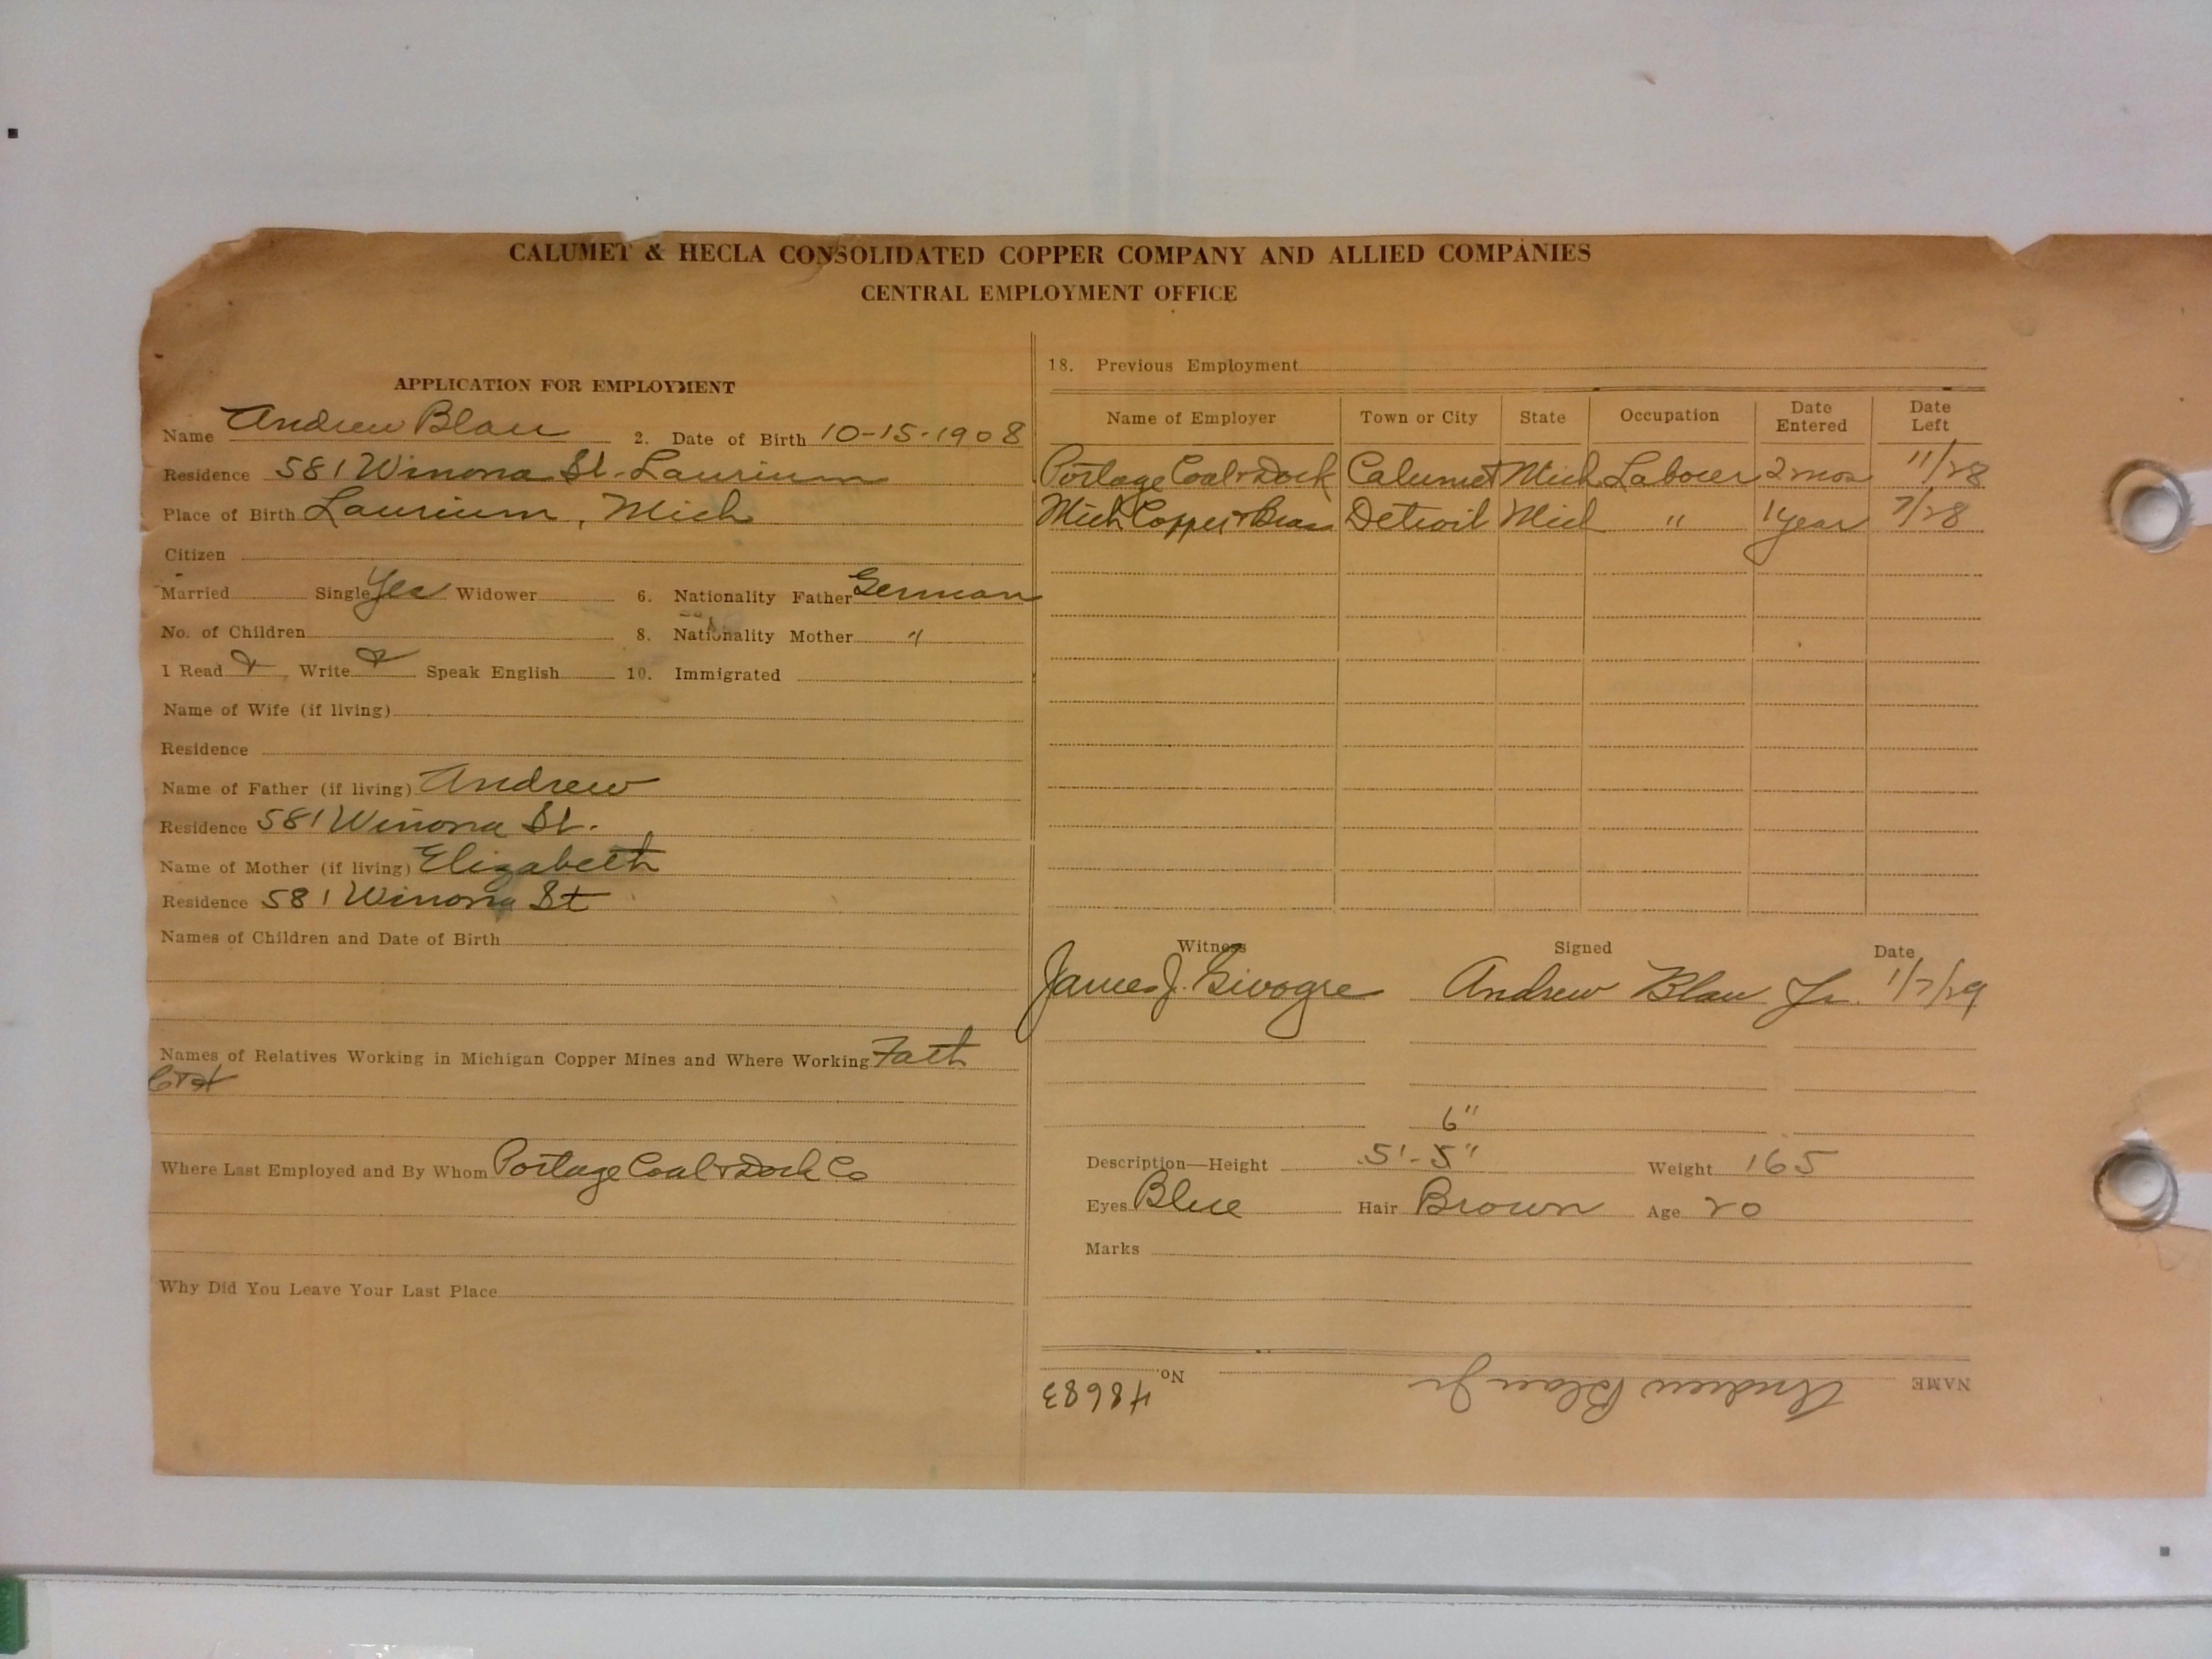 CALUMET & HECLA CONSOLIDATED COPPER COMPANY AND ALLIED COMPANIES
CENTRAL EMPLOYMENT OFFICE
APPLICATION FOR EMPLOYMENT
Name Andrew Blau 2. Date of Birth 10-15-1908
Residence 581 Winona St. Laurium
Place of Birth Laurium, Mich
Citizen
Married Single Yes Widower 6. Nationality Father German
No. of Children 8. Nationality Mother "
I Read Write Speak English 10. Immigrated
Name of Wife (if living)
Residence
Name of Father (if living) Andrew
Residence 581 Winona St.
Name of Mother (if living) Elizabeth
Residence 581 Winona St
Names of Children and Date of Birth
Names of Relatives Working in Michigan Copper Mines and Where Working Fath
C+H
Where Last Employed and By Whom Portage Coal & Dock Co
Why Did You Leave Your Last Place
18. Previous Employment
Name of Employer Town or City State Occupation Date Entered Date Left
Portage Coal & Dock Calumet Mich Laborer 2 mos 11/28
Mich Copper & Brass Detroit Mich " 1 year 7/28
Witness Signed Date
James J. Andrew Blau Jr. 1/7/29
6"
Description—Height 5'-5" Weight 165
Eyes Blue Hair Brown Age 20
Marks
NAME Andrew Blau Jr No. 48683